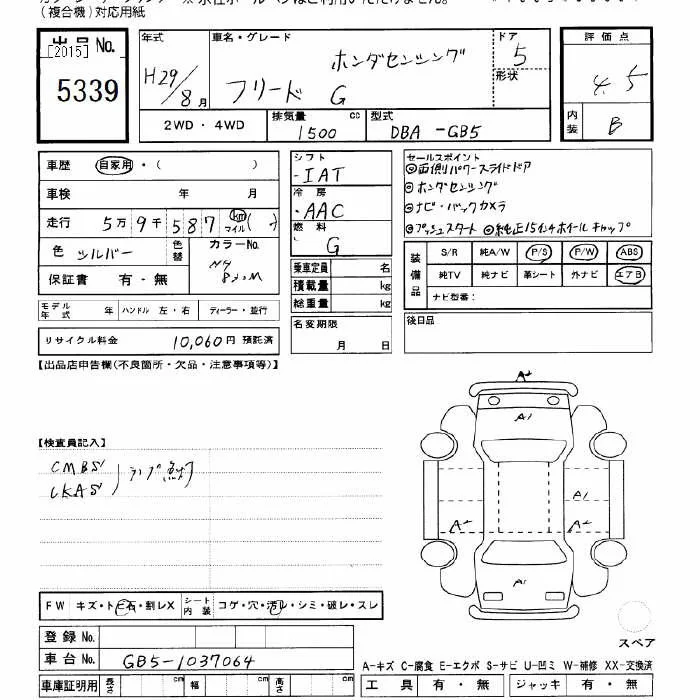 (複合機)対応用紙
出品 No.
[2015]
5339
年式 車名・グレード ドア 評価点
H29/8月 フリード G ホンダセンシング 5 4.5
形状
2WD・4WD 排気量 cc 型式 内装
1500 DBA -GB5 B
車歴 自家用・( )
車検 年 月
走行 5万9千587 km マイル( )
色 シルバー 色替 カラーNo.
NH830M
保証書 有・無
モデル年式 年 ハンドル 左・右 ディーラー・並行
リサイクル料金 10,060円 預託済
シフト
・IAT
冷房
・AAC
燃料
G
乗車定員 名
積載量 kg
総重量 kg
名変期限
月 日
セールスポイント
◎両側パワースライドドア
◎ホンダセンシング
◎ナビ・バックカメラ
◎プッシュスタート ◎純正15インチホイールキャップ
装備品 S/R 純A/W P/S P/W ABS
純TV 純ナビ 革シート 外ナビ エアB
ナビ型番:
後日品
【出品店申告欄(不良箇所・欠品・注意事項等)】
【検査員記入】
CMBS
LKAS ランプ点灯
A2
A1
A1
A2 A2
A1
FW キズ・トビ石・割レX シート内装 コゲ・穴・汚レ・シミ・破レ・スレ
登録 No.
車台 No. GB5-1037064
車庫証明用 長さ cm 幅 cm 高さ cm
スペア
A-キズ C-腐食 E-エクボ S-サビ U-凹ミ W-補修 XX-交換済
工具 有・無 ジャッキ 有・無